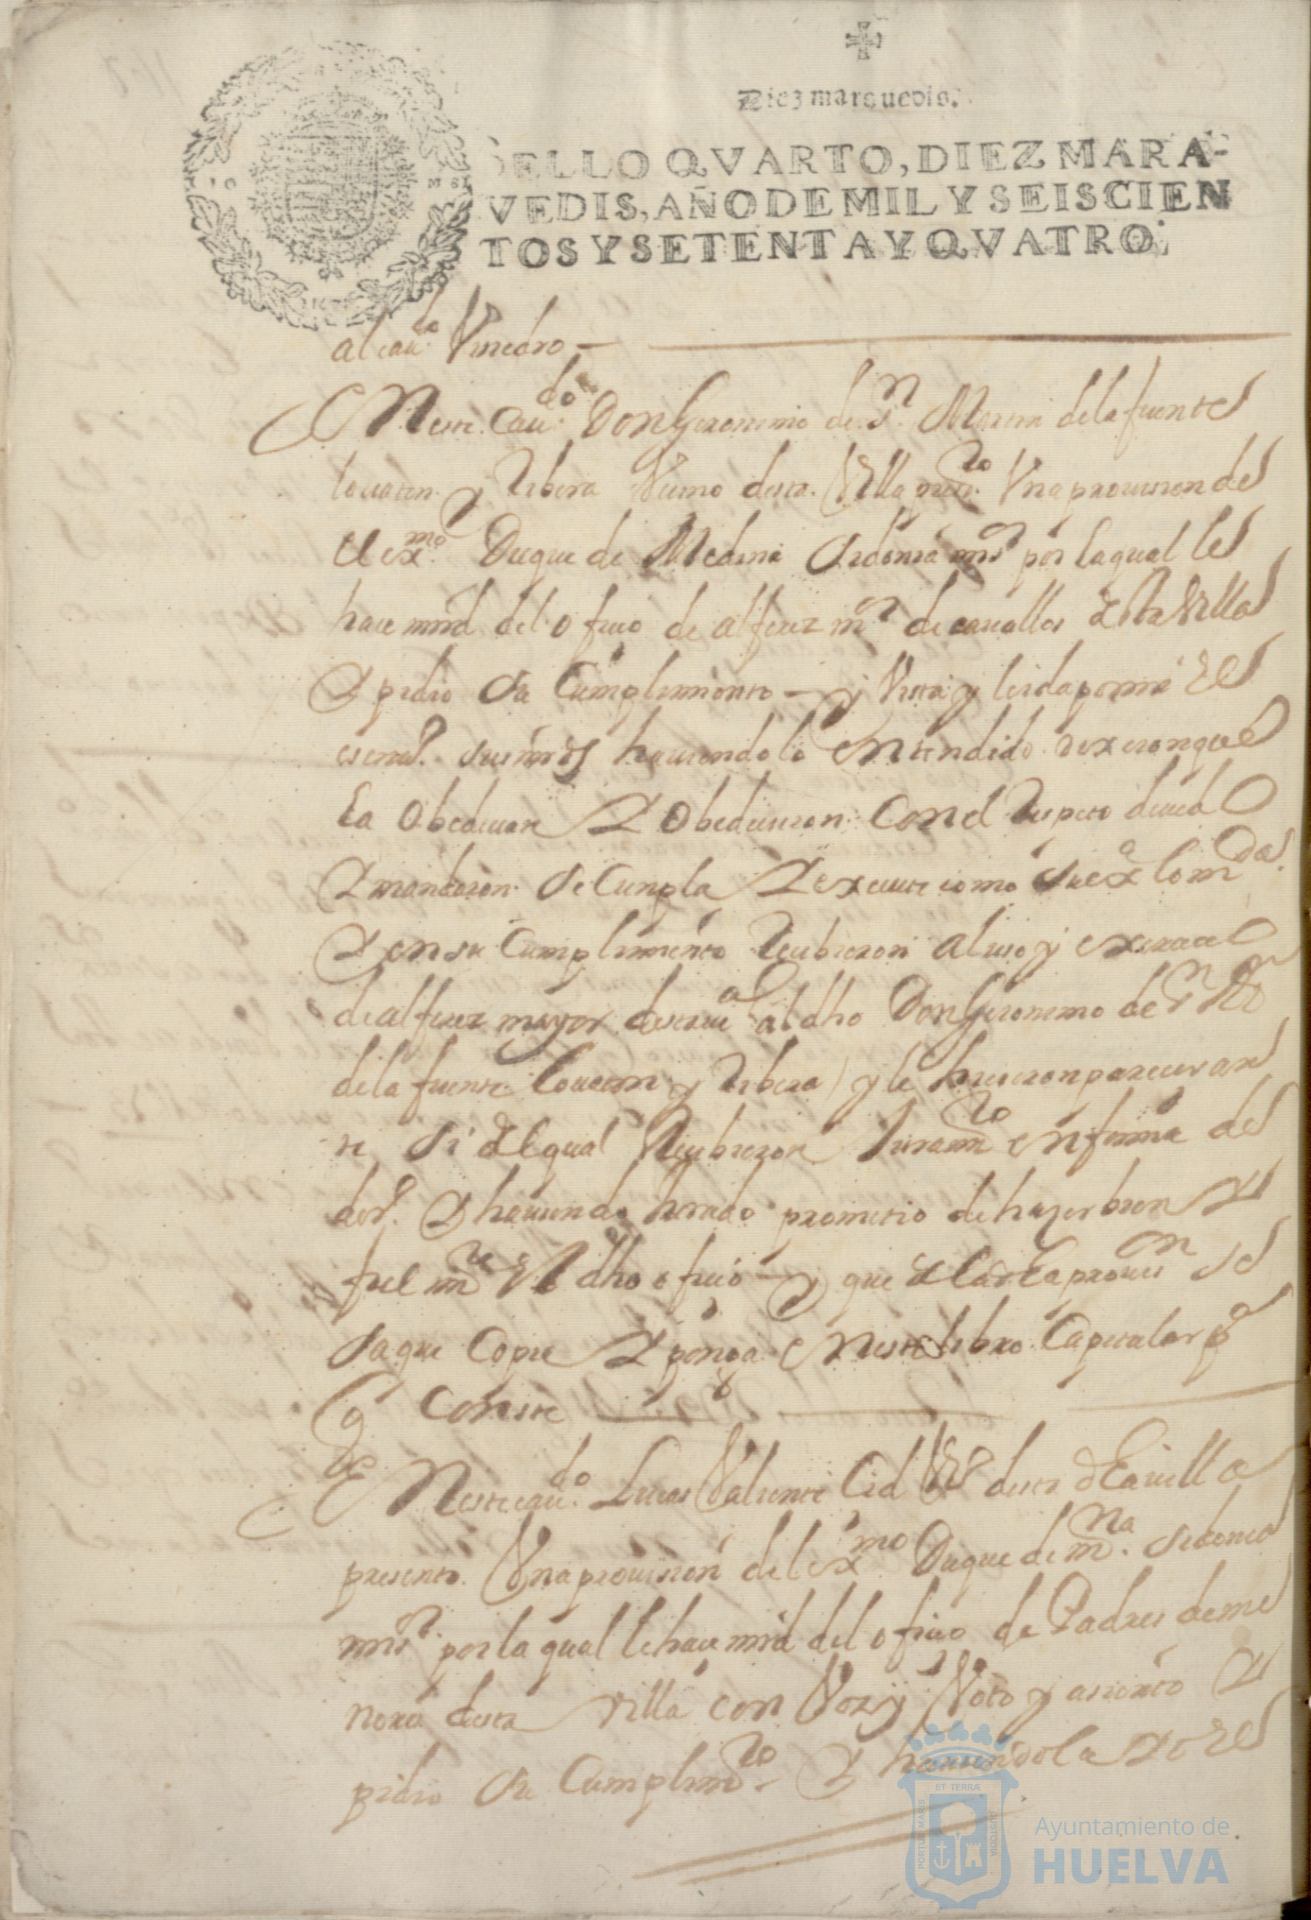 Diez marauedis.
SELLO QVARTO, DIEZ MARA-
VEDIS, AÑO DE MIL Y SEISCIEN
TOS Y SETENTA Y QVATRO.
al cau.do
En este Cau.do Don Geronimo de S.n Martin de la fuente
y Ribera Vecino desta Villa pres.to Vna prouision del
el ex.mo Duque de Medina Sidonia mi s.r por la qual le
hace mrd del oficio de alferez m.or de cauallos desta Villa
y pidio su Cumplimiento — y vista y leida por mi el
escriu.o sus mrds hauiendolo entendido dixeron que
la obedecian y obedecieron con el respeto deuido
y mandaron se cumpla y execute como su ex.a lo m.da
y en su Cumplimiento Reciuieron al uso y exercicio
de alferez mayor al dho Don Geronimo de S.n M.n
de la fuente y Ribera y le hicieron parecer an
te si del qual Reciuieron Juram.to en forma de
der.o y hauiendo Jurado prometio de hazer bien y
fiel m.te el dho oficio — y que de la dha prouis.on se
saque Copia y ponga en este libro Capitular p.a
q Conste
En este cau.do Lucas Valiente Cid V.o desta dha villa
presento Vna prouision del ex.mo Duque de m.na Sidonia
mi s.r por la qual le hace mrd del oficio de Padre de me
nores desta villa con Voz y Voto y asiento y
pidio su Cumplim.to y hauiendola
PORTUS MARIS
ET TERRÆ
CUSTODIA
Ayuntamiento de
HUELVA